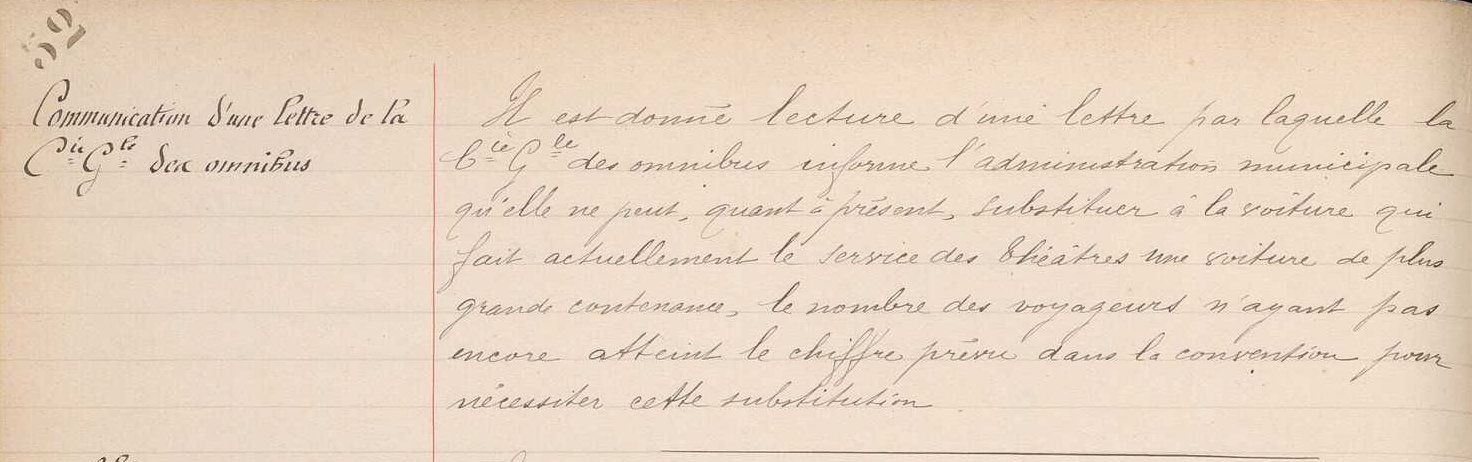 52
Communication d'une lettre de la
Cie Gle des omnibus
Il est donné lecture d'une lettre par laquelle la
Cie Gle des omnibus informe l'administration municipale
qu'elle ne peut, quant à présent, substituer à la voiture qui
fait actuellement le service des théâtres une voiture de plus
grande contenance, le nombre des voyageurs n'ayant pas
encore atteint le chiffre prévu dans la convention pour
nécessiter cette substitution